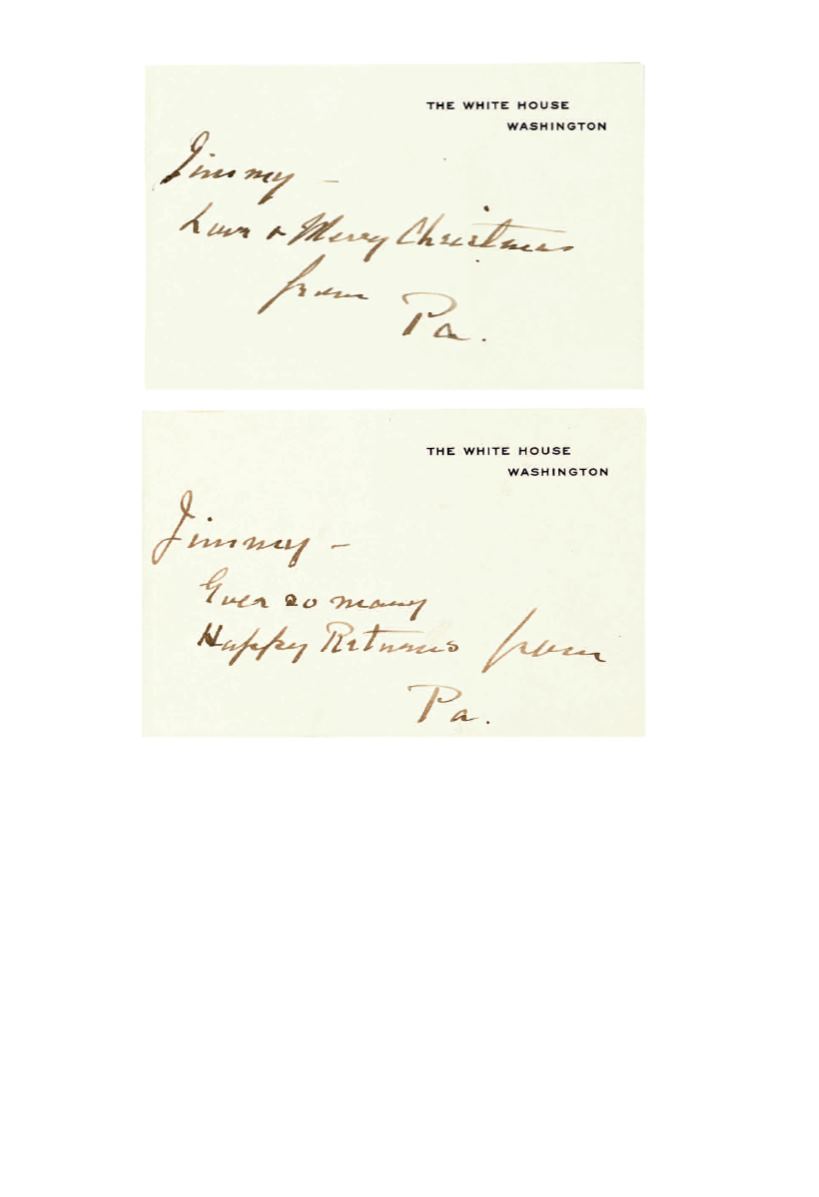 THE WHITE HOUSE
WASHINGTON
Jimmy -
Love & Merry Christmas
from
Pa.
THE WHITE HOUSE
WASHINGTON
Jimmy -
Ever so many
Happy Returns from
Pa.